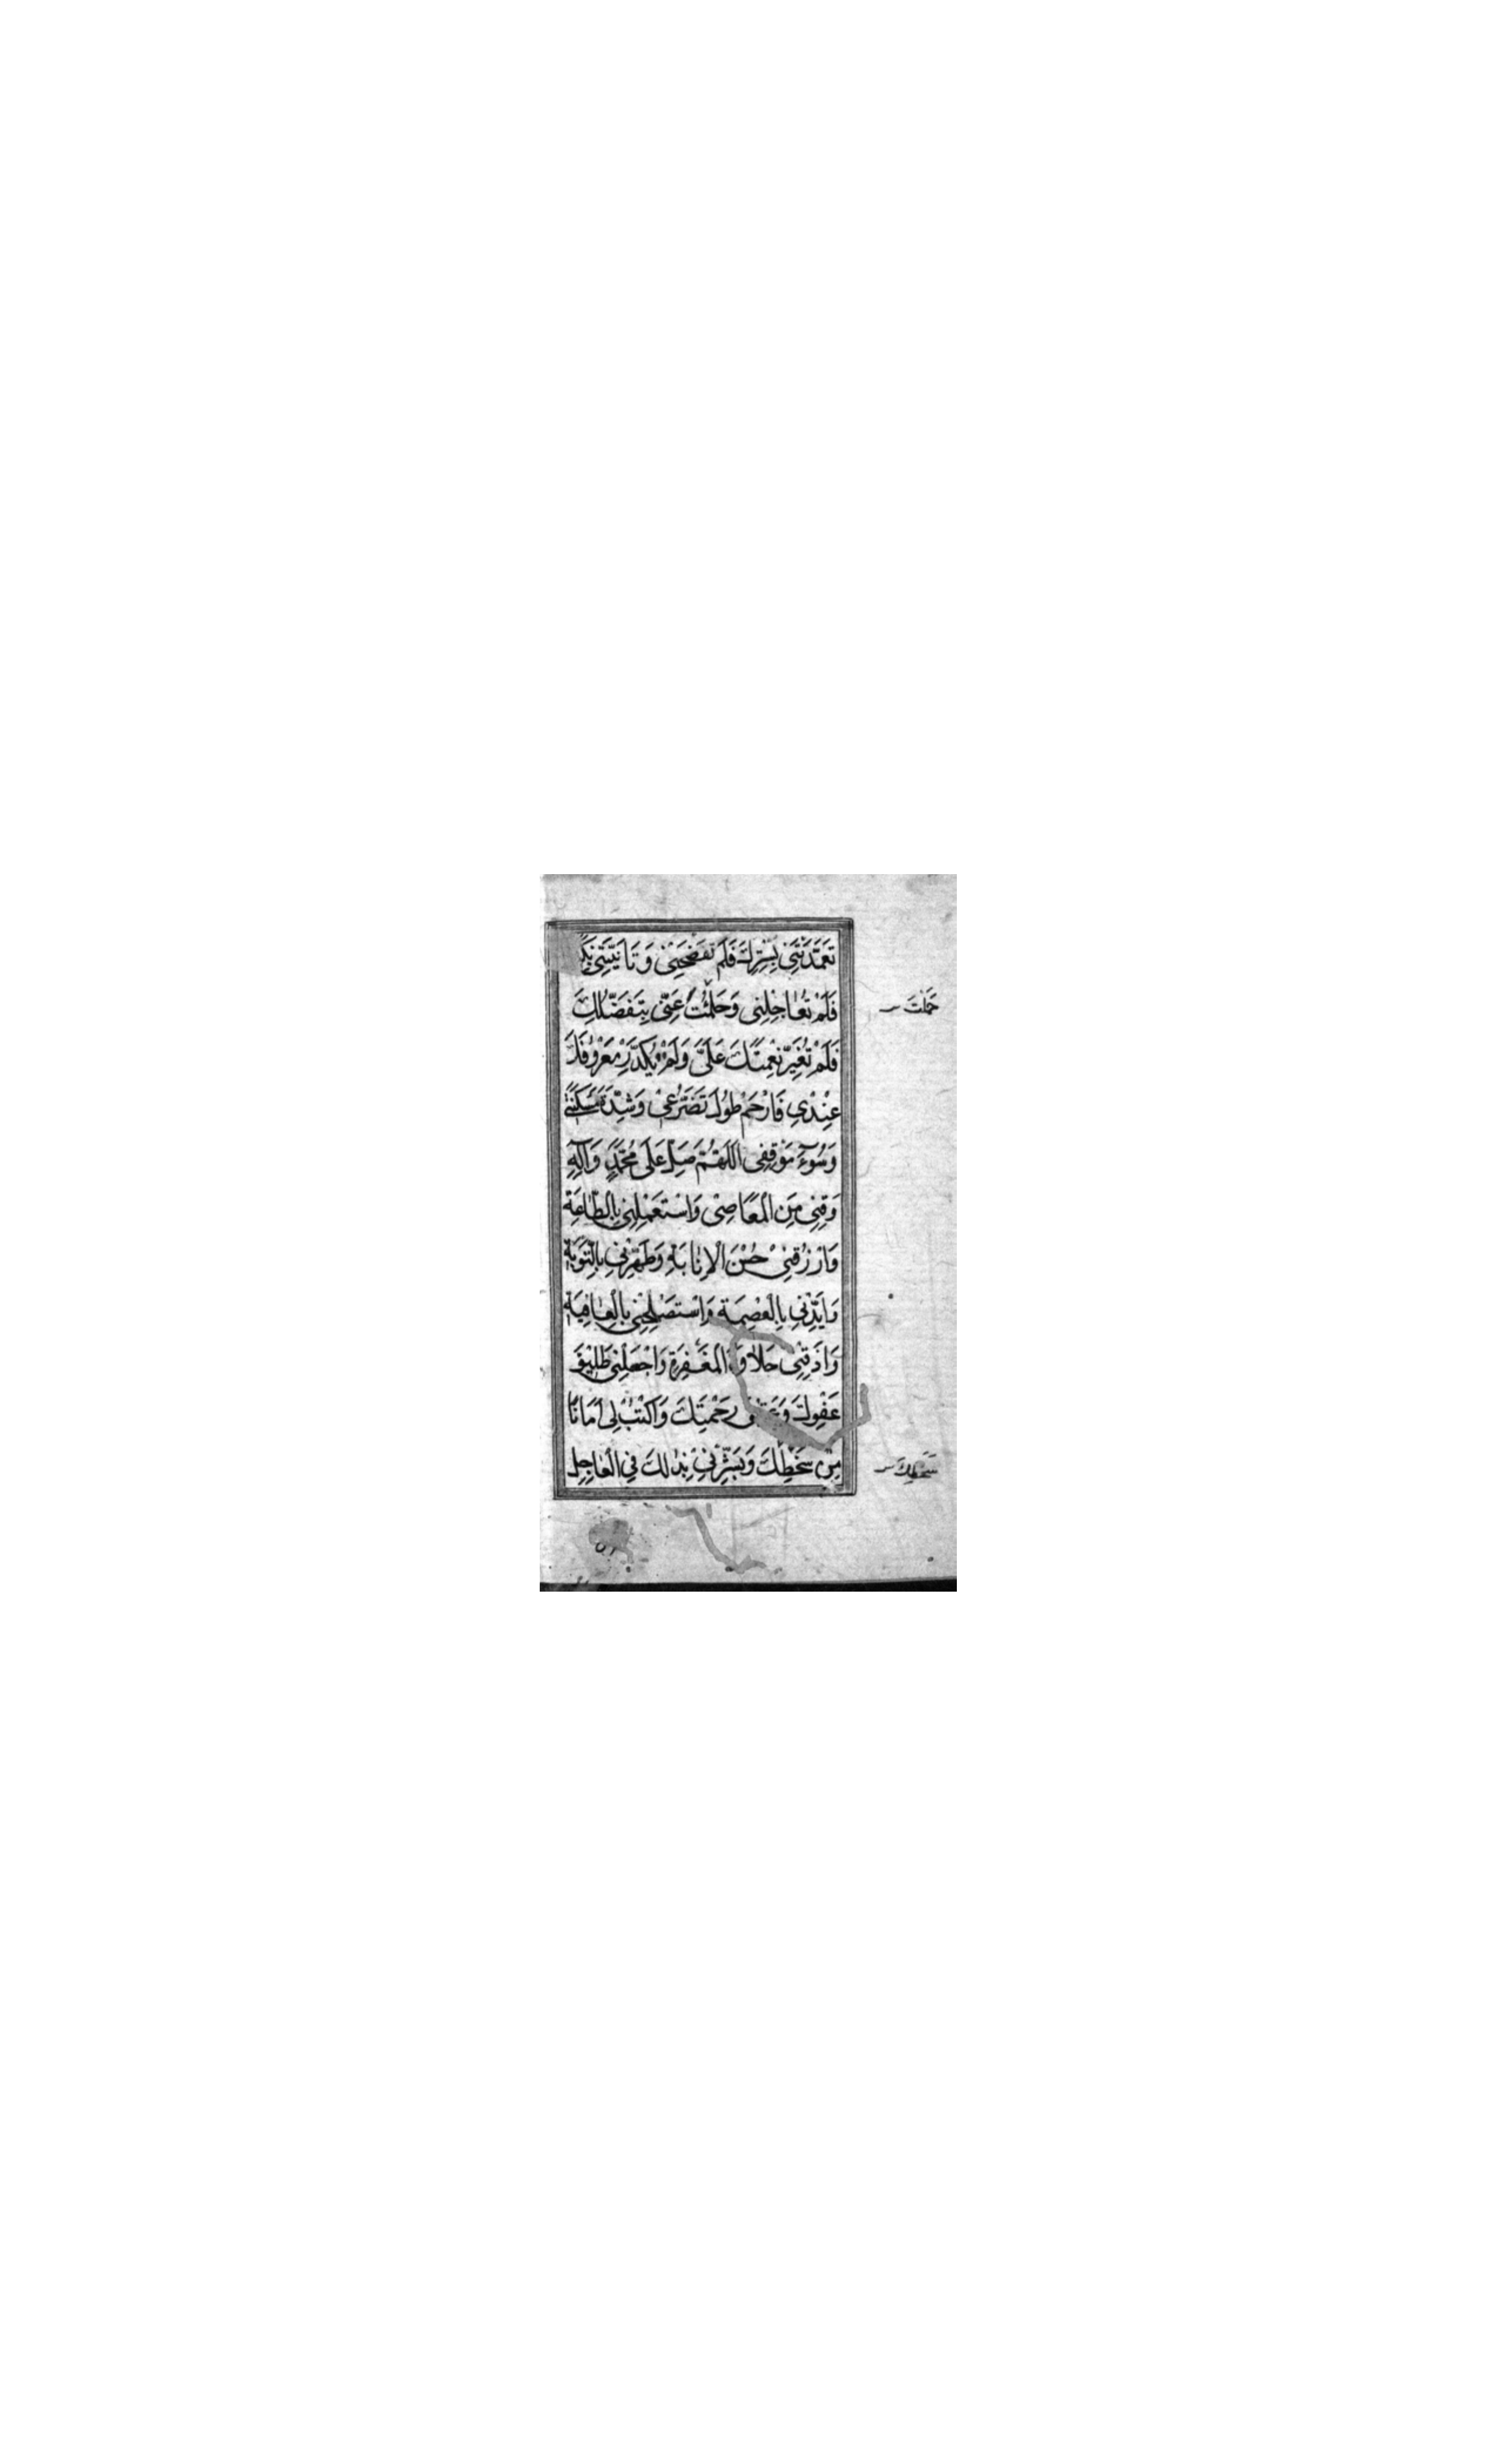 تَغَمَّدْتَنِي بِسِتْرِكَ فَلَمْ تَفْضَحْنِي وَتَأَنَّيْتَنِي
فَلَمْ تُعَاجِلْنِي وَحَلُمْتَ عَنِّي بِتَفَضُّلِكَ
حَلُمْتَ
فَلَمْ تُغَيِّرْ نِعْمَتَكَ عَلَيَّ وَلَمْ يُكَدِّرْ مَعْرُوفَكَ
عِنْدِي فَارْحَمْ طُولَ تَضَرُّعِي وَشِدَّةَ مَسْكَنَتِي
وَسُوءَ مَوْقِفِي اللَّهُمَّ صَلِّ عَلَى مُحَمَّدٍ وَآلِهِ
وَقِنِي مِنَ الْمَعَاصِي وَاسْتَعْمِلْنِي بِالطَّاعَةِ
وَارْزُقْنِي حُسْنَ الْإِنَابَةِ وَطَهِّرْنِي بِالتَّوْبَةِ
وَأَيِّدْنِي بِالْعِصْمَةِ وَاسْتَصْلِحْنِي بِالْعَافِيَةِ
وَأَذِقْنِي حَلَاوَةَ الْمَغْفِرَةِ وَاجْعَلْنِي طَلِيقَ
عَفْوِكَ رَحْمَتِكَ وَاكْتُبْ لِي أَمَانًا
مِنْ سَخَطِكَ وَبَشِّرْنِي بِذَلِكَ فِي الْعَاجِلِ
سَخَطِكَ